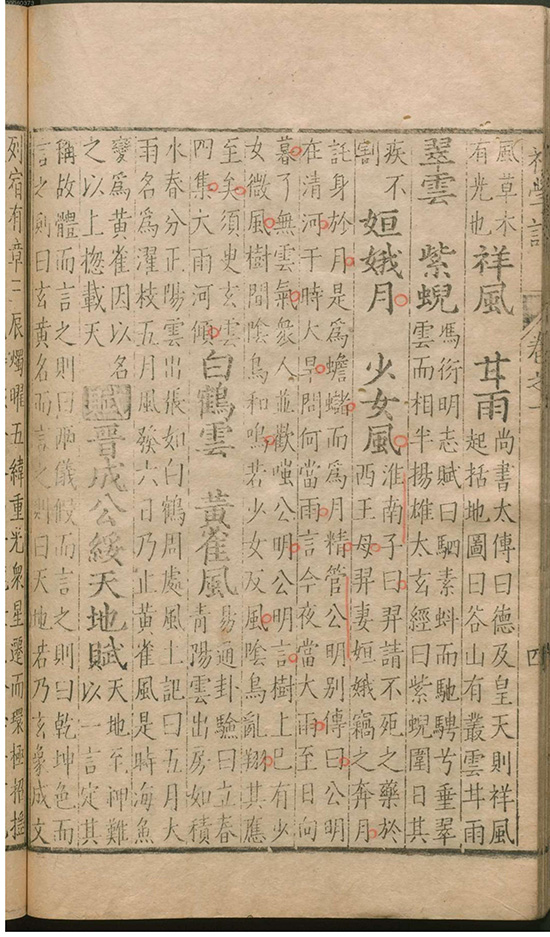 初學記 卷之一 四
風草木
有光也
祥風 甘雨
尚書大傳曰德及皇天則祥風
起括地圖曰谷山有叢雲甘雨
翠雲 紫蜺
馮衍明志賦曰駟素蚪而馳騁兮垂翠
雲而相半揚雄太玄經曰紫蜺圍日其
疾不
割
姮娥月 少女風
淮南子曰羿請不死之藥於
西王母羿妻姮娥竊之奔月
託身於月是爲蟾蠩而爲月精管公明別傳曰公明
在清河于時大旱問何當雨言今夜當大雨至日向
暮了無雲氣衆人並歡嗤公明公明言樹上已有少
女微風樹間陰鳥和鳴若少女反風陰鳥亂翔其應
至矣須臾玄雲
四集大雨河傾
白鶴雲 黃雀風
易通卦驗曰立春
青陽雲出房如積
水春分正陽雲出張如白鶴周處風土記曰五月大
雨名爲濯枝五月風發六日乃止黃雀風是時海魚
變爲黃雀因以名
之以上揔載天
賦晉成公綏天地賦
天地至神難
以一言定其
稱故體而言之則曰兩儀假而言之則曰乾坤色而
言之則曰玄黃名而言之則曰天地若乃玄象成文
列宿有章三辰燭曜五緯重光衆星還而環極招搖